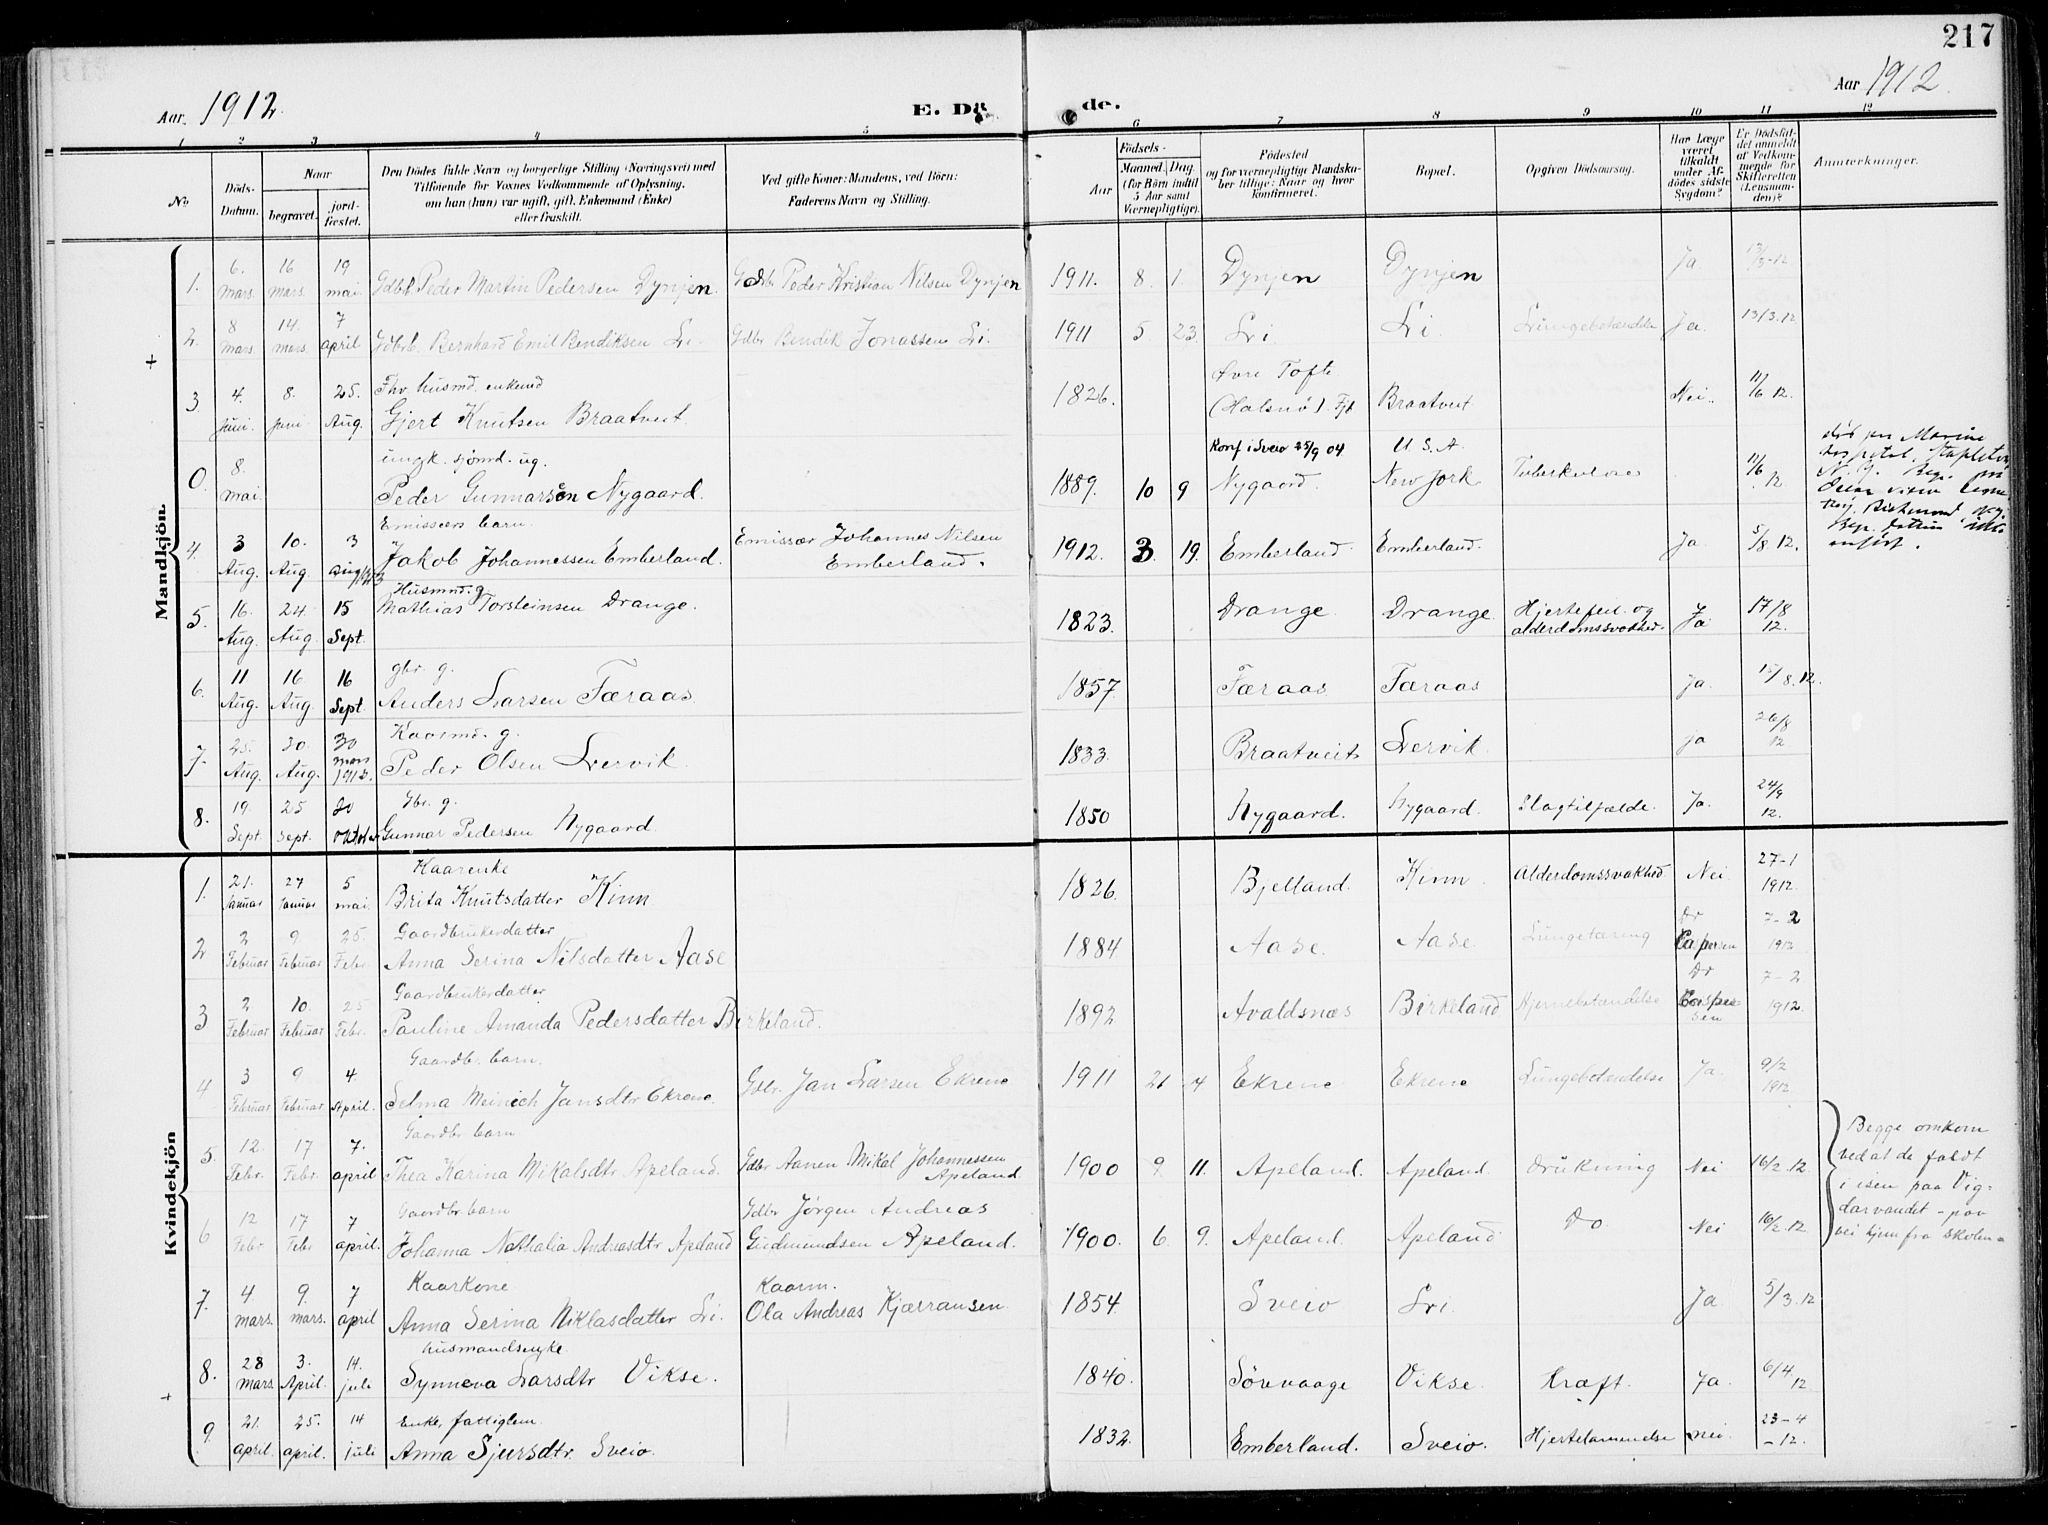 217
Aar 1912. E. Döde. Aar 1912
1 2 3 4 5 6 7 8 9 10 11 12
No. Döds-Datum. Naar begravet. jordfæstet. Den Dödes fulde Navn og borgerlige Stilling (Næringsvei) med Tilföiende for Voxnes Vedkommende af Oplysning, om han (hun) var ugift, gift, Enkemand (Enke) eller fraskilt. Ved gifte Koner: Mandens, ved Börn: Faderens Navn og Stilling. Födsels- Aar Maaned. Dag. (for Börn indtil 5 Aar samt Værnepligtige). Födested og for værnepligtige Mandskaber tillige: Naar og hvor konfirmeret. Bopæl. Opgiven Dödsaarsag. Har Læge været tilkaldt under Afdödes sidste Sygdom? Er Dödsfaldet anmeldt af Vedkommende for Skifteretten (Lensmanden)? Anmærkninger.
Mandkjön.
1. 6. mars. 16 mars. 19 mai. Gdbr. Peder Martin Pedersen Dynjen. Gdbr Peder Kristian Nilsen Dynjen 1911. 8. 1. Dynjen Dynjen Ja 13/3-12
2. 8 mars. 14. mars. 7 april Gdbr. Bernhard Emil Bendiksen Li. Gdbr Bendik Jonassen Li. 1911 5 23. Li. Li. Lungebetændelse Ja. 13/3.12
3. 4. juni. 8. juni 25. Aug. Fhv. husmd. enkemd Gjert Knutsen Braatveit. 1826. Øvre Tofte (Halsnö). Fjb Braatveit Nei. 11/6 12.
0. 8. mai. ungk. sjömd. ug. Peder Gunnarsen Nygaard. 1889. 10 9 Konf i Sveio 25/9 04 Nygaard. U.S.A. New Jork Tuberkulose 11/6 12
död paa Marine Hospital, Stapleton
N. Y. Beg. paa
Richmond
Beg. datum ikke
anfört.
4. 3 Aug. 10. Aug. 3 aug 1913 Emissærs barn. Jakob Johannessen Emberland. Emissær Johannes Nilsen Emberland. 1912. 3. 19. Emberland. Emberland. Ja 5/8.12.
5. 16. Aug. 24. Aug. 15 Sept. Husmnd. g. Mathias Torsteinsen Drange. 1823. Drange Drange. Hjertefeil og alderdomssvakhed. Ja 17/8 12.
6. 11 Aug. 16 Aug. 16 Sept. gbr. g. Anders Larsen Færaas. 1857. Færaas Færaas Ja. 15/8.12.
7. 25. Aug. 30. Aug. 30 mars 1913. Kaarmd. g. Peder Olsen Lervik. 1833. Braatveit Lervik. ja 26/8 12
8. 19. Sept. 25 sept. 20 oktober Gbr. g. Gunnar Pedersen Nygaard 1850 Nygaard. Nygaard. Slagtilfælde. Ja. 24/9 12.
Kvindekjön
1. 21. Januar 27 Januar 5 mai. Kaarenke Brita Knutsdatter Kinn 1826. Bjelland. Kinn. Alderdomssvakhed Nei 27-1 1912.
2 2 Februar 9 Februar 25. Febr. Gaardbrukerdatter Anna Serina Nilsdatter Aase 1884 Aase. Aase Lungetæring Dr Caspersen 7-2 1912
3 2 Februar 10. Februar 25 Febr. Gaardbrukerdatter Pauline Amanda Pedersdatter Birkeland. 1892 Avaldsnæs Birkeland Hjernebetændelse Dr Caspersen 7-2 1912.
4 3 Februar 9 Februar 4. April. Gaardbr. barn. Selma Meinich Jansdtr Ekrene. Gdbr. Jan Larsen Ekrene 1911 21 4 Ekrene Ekrene Lungebetændelse Ja. 9/2 1912
5. 12. Febr. 17 Febr. 7. april Gaardbr. barn Thea Karina Mikalsdtr Apeland. Gdbr Aanen Mikal Johannessen Apeland 1900 9. 11. Apeland. Apeland. Drukning Nei 16/2.12.
6 12 Febr 17 Febr 7 april. Gaardbr. barn Johanna Nathalia Andreasdtr Apeland Gdbr Jörgen Andreas Gudmundsen Apeland. 1900. 6. 9. Apeland. Apeland. Do Nei 16/2.12.
Begge omkom
ved at de faldt
i isen paa Vig-
darvandet - paa
vei hjem fra skolen.
7. 4 mars. 9. mars. 7 april Kaarkone Anna Serina Niklasdatter Li. Kaarm. Ola Andreas Kjærransen. 1854. Sveio Li. Ja. 5/3.12
8. 28 mars. 3. April. 14. juli husmandsenke Synneva Larsdtr Vikse. 1840. Sörevaage Vikse. Kræft. Ja. 6/4 12
9. 21. april. 25. april. 14 juli Enke, fattiglem. Anna Sjursdtr. Sveio. 1832. Emberland. Sveio. Hjertelammelse nei. 23-4-12.